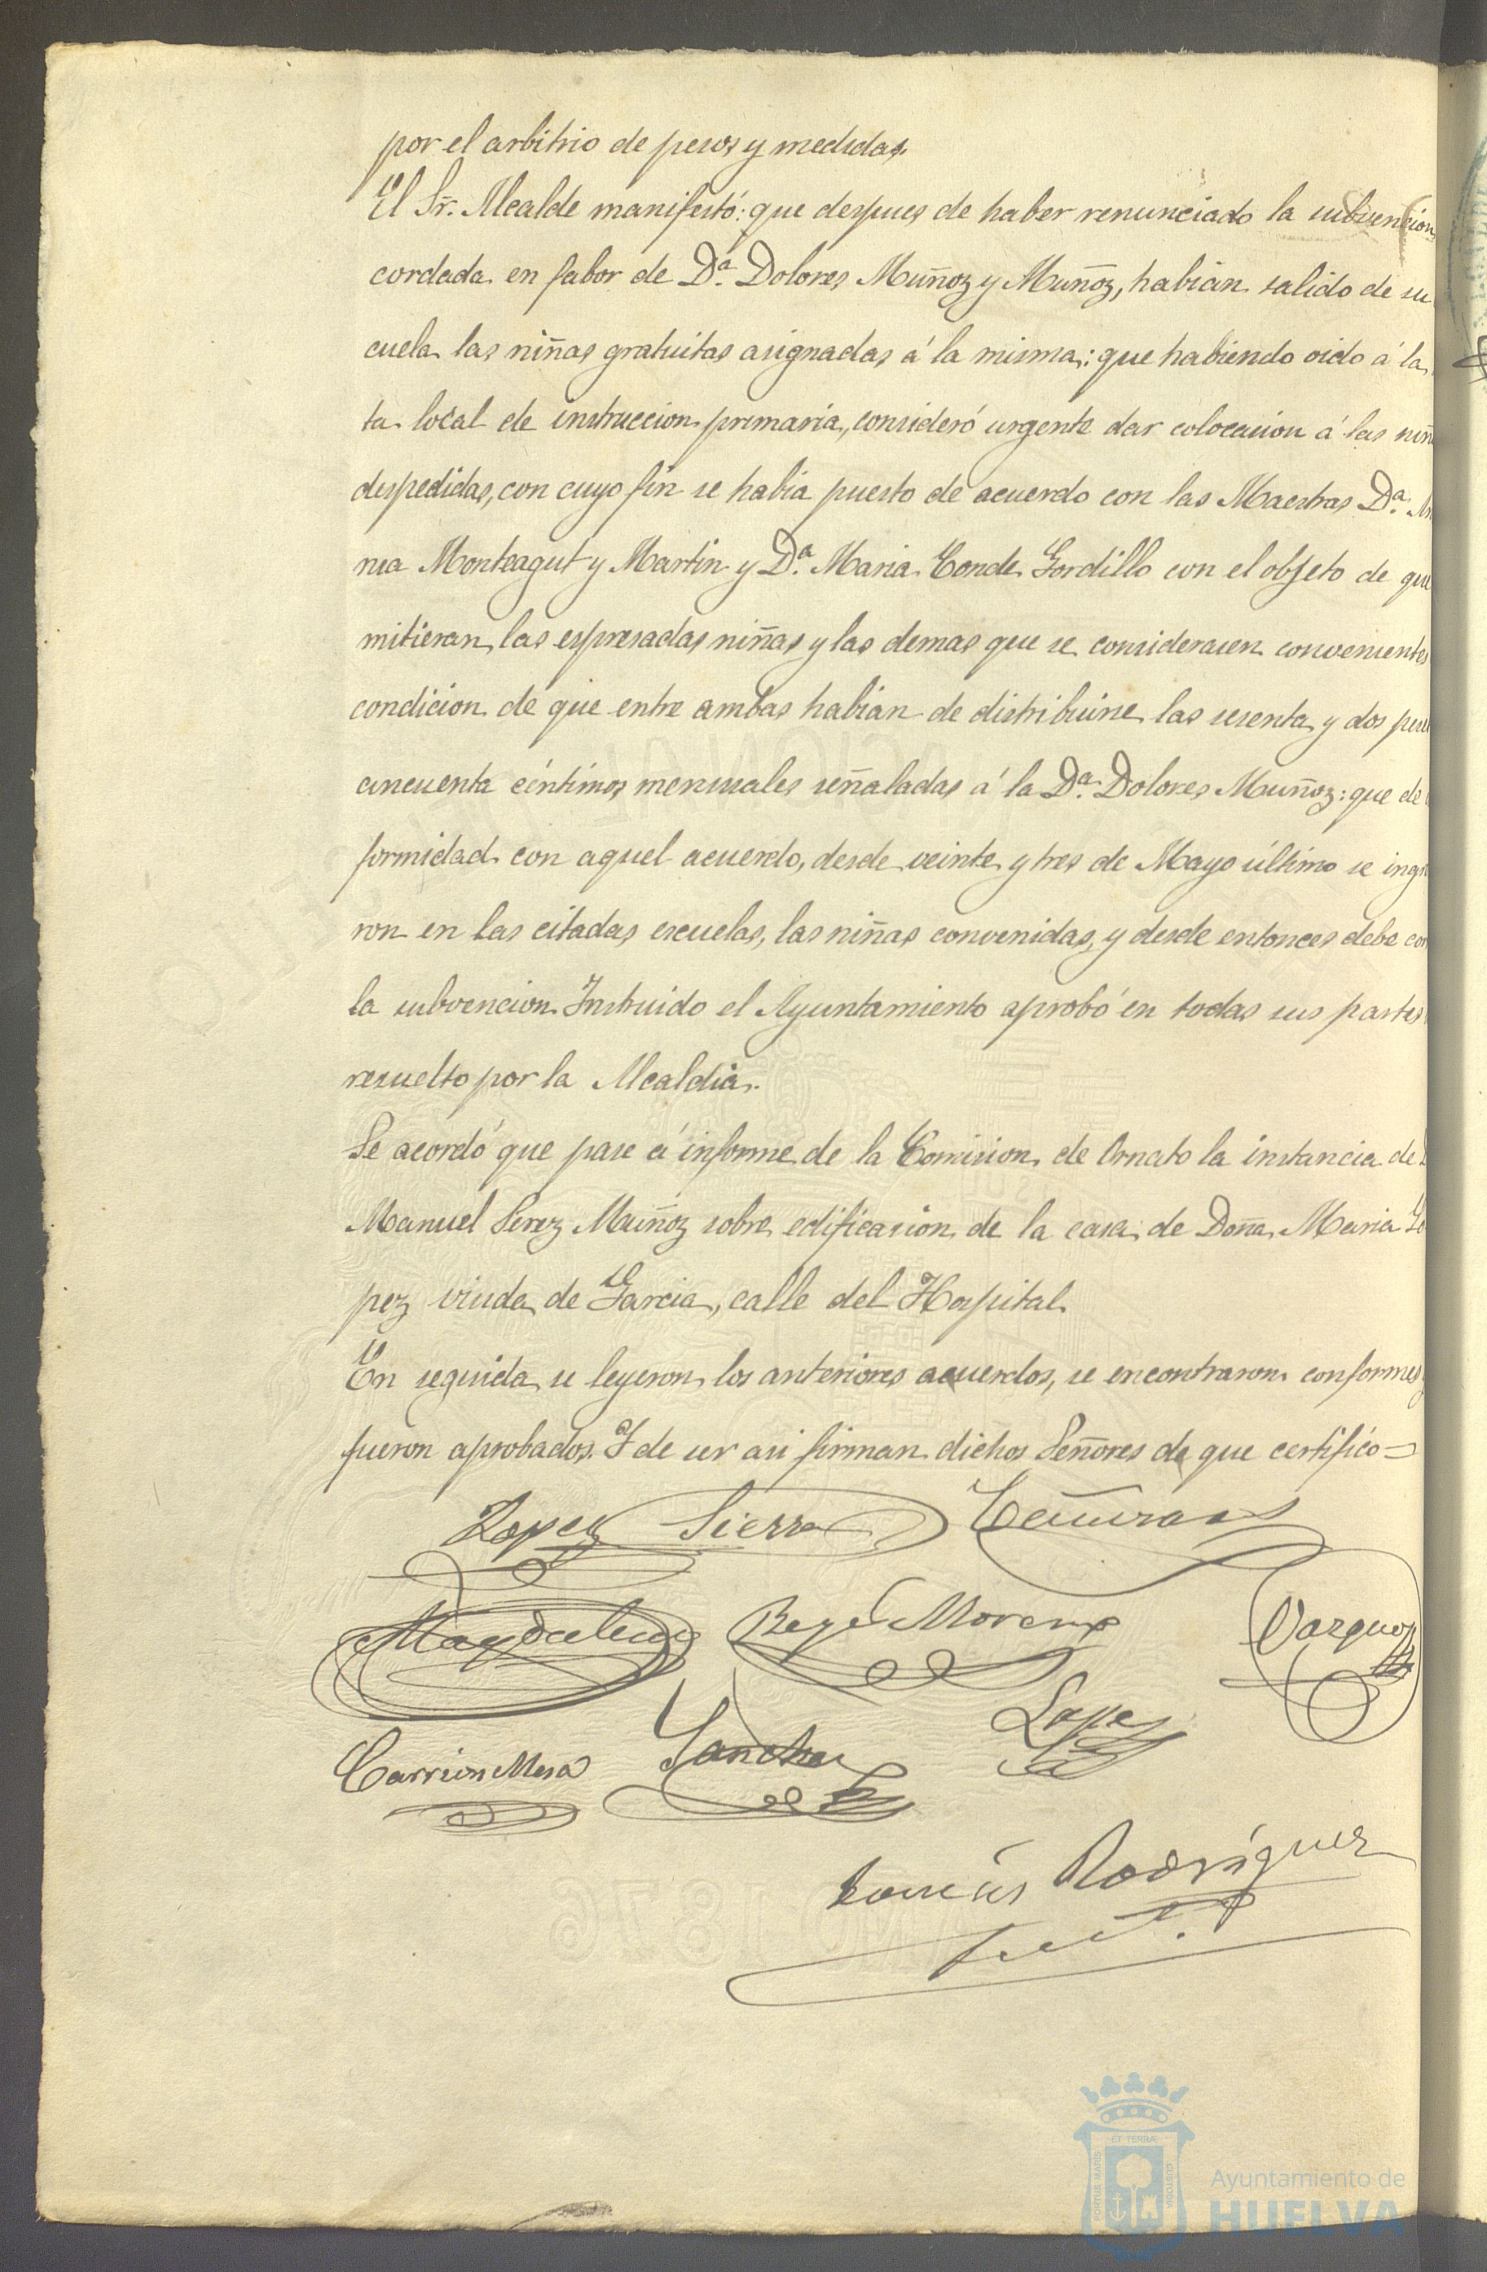 por el arbitrio de pesos y medidas.
El Sr. Alcalde manifestó: que despues de haber renunciado la subvencion
cordada en fabor de Dª Dolores Muñoz y Muñoz, habian salido de su
cuela las niñas gratuitas asignadas á la misma: que habiendo oido á la
ta local de instruccion primaria, consideró urgente dar colocacion á las niñ
despedidas, con cuyo fin se habia puesto de acuerdo con las Maestras Dª
nia Monteagut y Martin y Dª Maria Conde Gordillo con el objeto de que
mitieran las espresadas niñas y las demas que se considerasen convenientes
condicion de que entre ambas habian de distribuirse las sesenta y dos pese
cincuenta céntimos mensuales señaladas á la Dª Dolores Muñoz: que de
formidad con aquel acuerdo, desde veinte y tres de Mayo último se ingre
ron en las citadas escuelas, las niñas convenidas, y desde entonces debe cor
la subvencion. Instruido el Ayuntamiento aprobó en todas sus partes
resuelto por la Alcaldia.
Se acordó que pase á informe de la Comision de Ornato la instancia de
Manuel Perez Muñoz sobre edificacion de la casa de Doña Maria Lo
pez viuda de Garcia, calle del Hospital.
En seguida se leyeron los anteriores acuerdos, se encontraron conformes
fueron aprobados. Y de ser asi firman dichos Señores de que certifico=
Lopez Sierra
Magdaleno Reyes Moreno Vazquez
Carrion Mesa Sanchez Lopez
Tomás Rodríguez
Srio.
AÑO 1876
ET TERRÆ
PORTUS MARIS
CUSTODIA
Ayuntamiento de
HUELVA